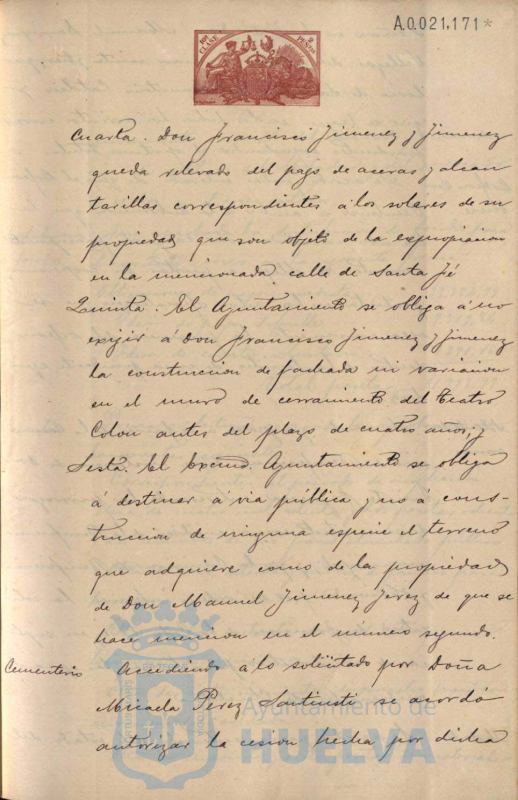 A.0.021,171*
10ª CLASE
2 PESETAS
Cuarta. Don Francisco Jimenez y Jimenez
queda relevado del pago de aceras y alcan
tarillas correspondientes á los solares de su
propiedad que son objeto de la expropiacion
en la mencionada calle de Santa Fé
Quinta. El Ayuntamiento se obliga á no
exigir á Don Francisco Jimenez y Jimenez
la construccion de fachada ni variacion
en el muro de cerramiento del Teatro
Colon antes del plazo de cuatro años; y
Sesta. El Excmo. Ayuntamiento se obliga
á destinar á via pública y no á cons-
truccion de ninguna especie el terreno
que adquiere como de la propiedad
de Don Manuel Jimenez Jerez de que se
hace mencion en el número segundo.
Cementerio Accediendo á lo solicitado por Doña
Micaela Perez se acordó
autorizar la cesion hecha por dicha
Ayuntamiento de
HUELVA